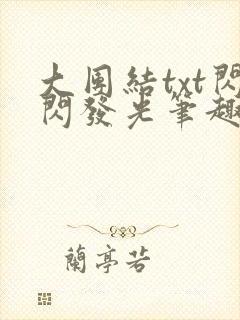 大团結txt閃
閃發光筆趣
蘭亭若